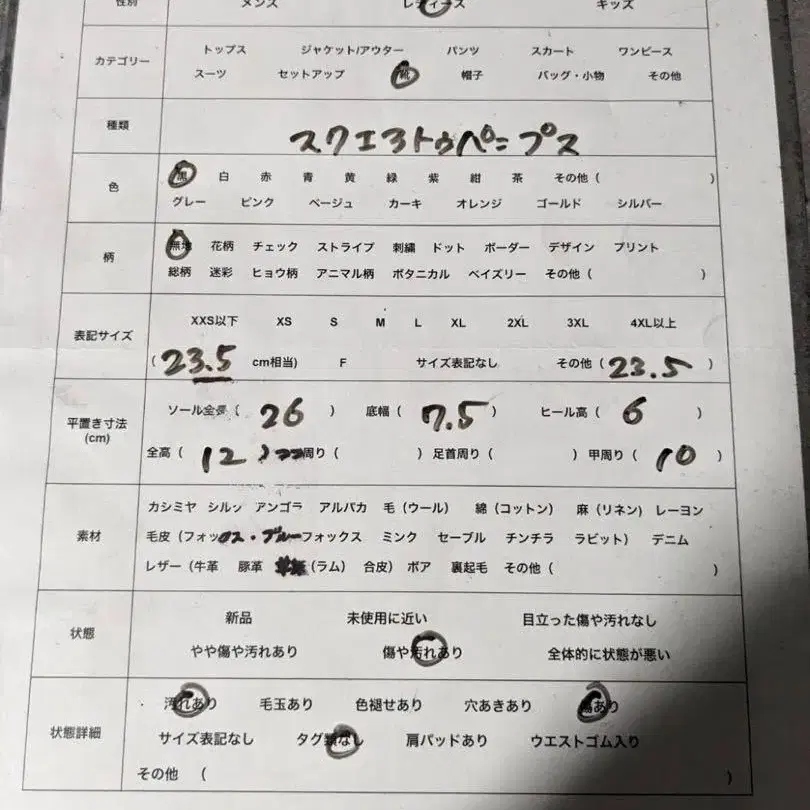 性別 メンズ レディース キッズ
カテゴリー
トップス ジャケット/アウター パンツ スカート ワンピース
スーツ セットアップ 靴 帽子 バッグ・小物 その他
種類 スクエアトゥパンプス
色
黒 白 赤 青 黄 緑 紫 紺 茶 その他( )
グレー ピンク ベージュ カーキ オレンジ ゴールド シルバー
柄
無地 花柄 チェック ストライプ 刺繍 ドット ボーダー デザイン プリント
総柄 迷彩 ヒョウ柄 アニマル柄 ボタニカル ペイズリー その他( )
表記サイズ
XXS以下 XS S M L XL 2XL 3XL 4XL以上
(23.5 cm相当) F サイズ表記なし その他(23.5)
平置き寸法
(cm)
ソール全長(26) 底幅(7.5) ヒール高(6)
全高(12) 周り( ) 足首周り( ) 甲周り(10)
素材
カシミヤ シルク アンゴラ アルパカ 毛(ウール) 綿(コットン) 麻(リネン) レーヨン
毛皮(フォックス・ブルーフォックス ミンク セーブル チンチラ ラビット) デニム
レザー(牛革 豚革 (ラム) 合皮) ボア 裏起毛 その他( )
状態
新品 未使用に近い 目立った傷や汚れなし
やや傷や汚れあり 傷や汚れあり 全体的に状態が悪い
状態詳細
汚れあり 毛玉あり 色褪せあり 穴あきあり 傷あり
サイズ表記なし タグ類なし 肩パッドあり ウエストゴム入り
その他 ( )